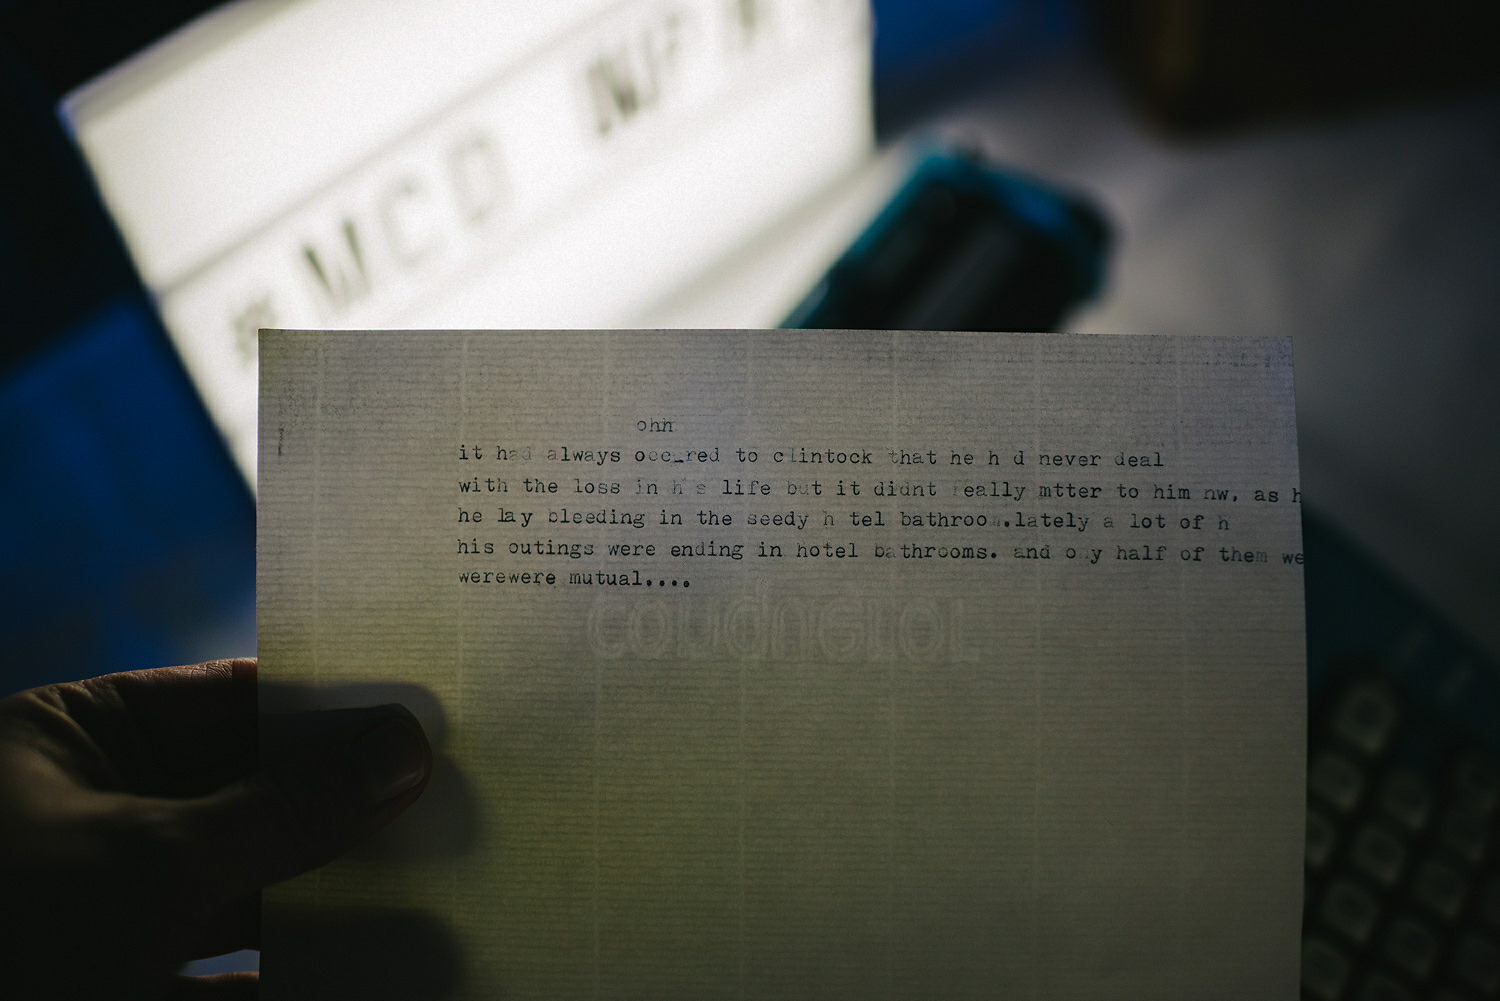 ohh
it had always occ_red to clintock that he h d never deal
with the loss in h s life but it didnt really mtter to him nw, as h
he lay bleeding in the seedy h tel bathroom.lately a lot of h
his outings were ending in hotel bathrooms. and o y half of them we
werewere mutual....